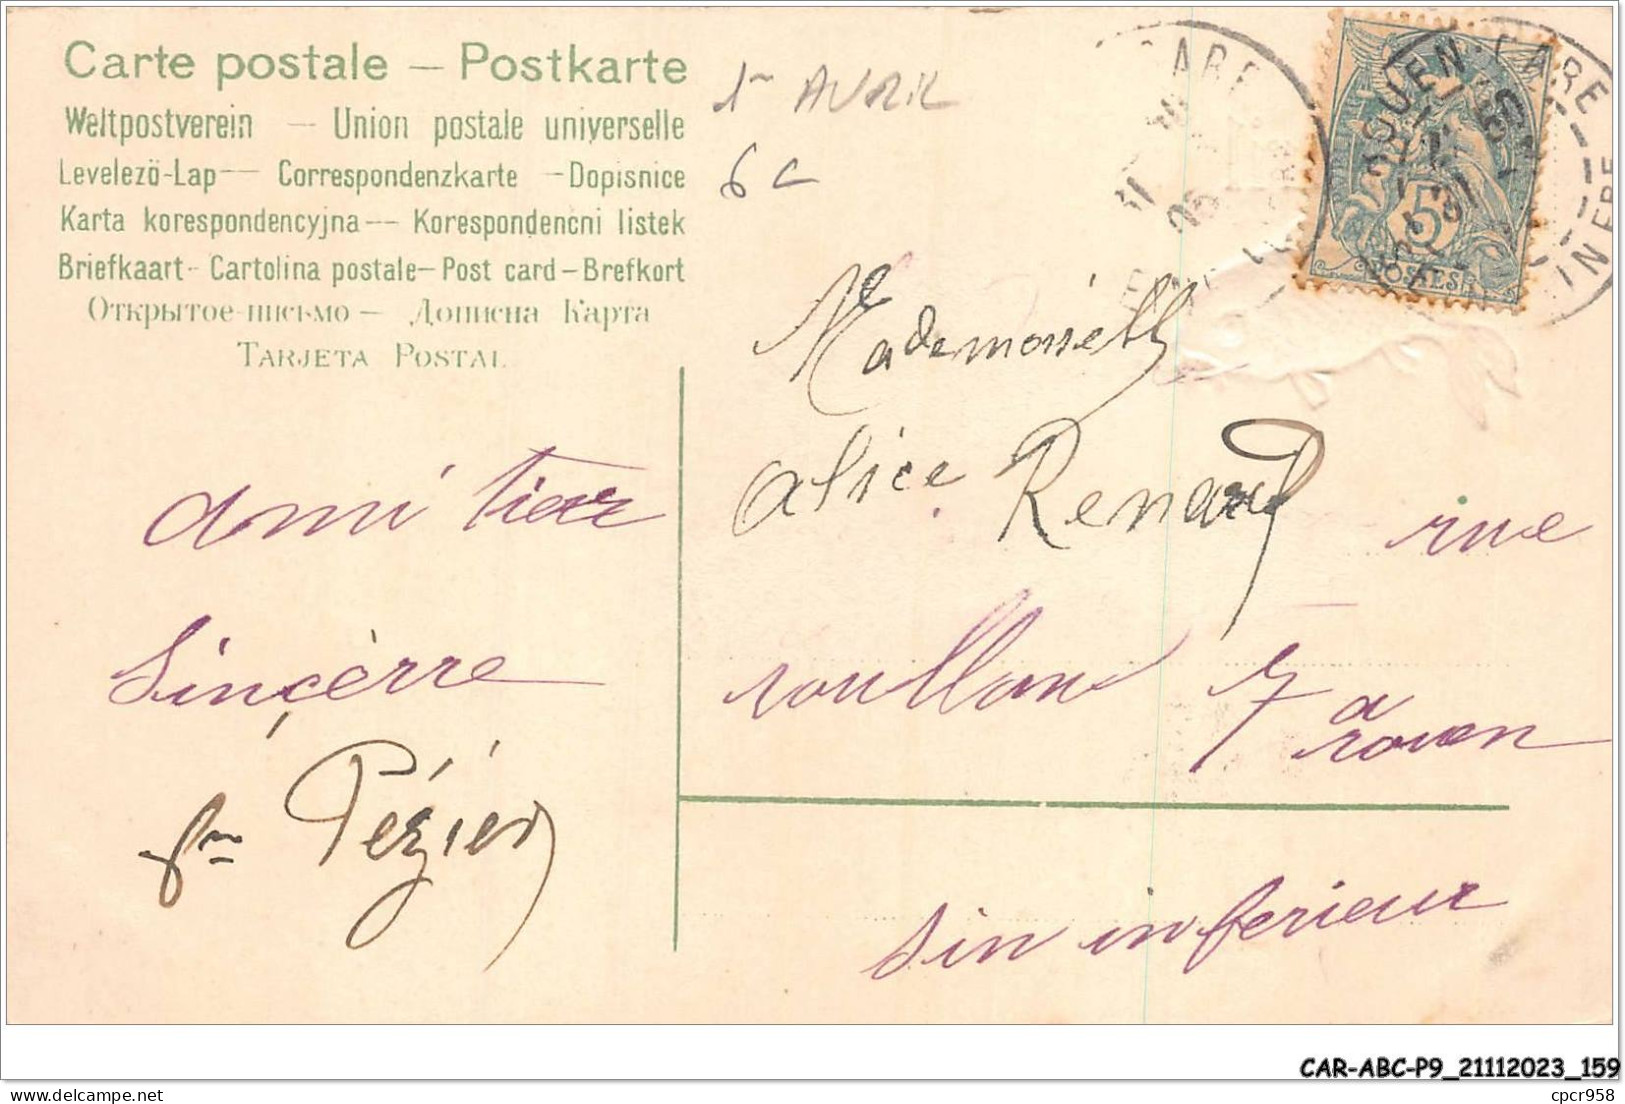 Carte postale – Postkarte
Weltpostverein – Union postale universelle
Levelezö-Lap – Correspondenzkarte – Dopisnice
Karta korespondencyjna – Korespondencni listek
Briefkaart - Cartolina postale – Post card – Brefkort
Открытое письмо – Дописна Карта
TARJETA POSTAL
1er AVRIL
6 c
ROUEN GARE
5
POSTES
Mademoiselle
alice Renard
rue
roulland 7 a
rouen
sin inferieur
ami tier
Sincèrre
Pézier
CAR-ABC-P9_21112023_159
cpcr958